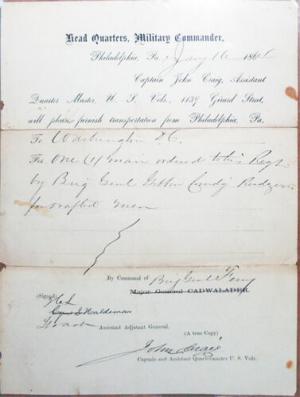 Head Quarters, Military Commander,
Philadelphia, Pa., 186
Captain John Craig, Assistant
Quarter Master, U. S. Vols., 1139 Girard Street,
will please furnish transportation from Philadelphia, Pa.
To Washington D.C.
For One (1) man ordered to his Regt
by Brig Genl Comdg Rendezvous
for drafted men
By Command of Brig Genl
Major General CADWALADER.
(Signed)
Assistant Adjutant General.
(A true Copy)
John Craig
Captain and Assistant Quartermaster U. S. Vols.